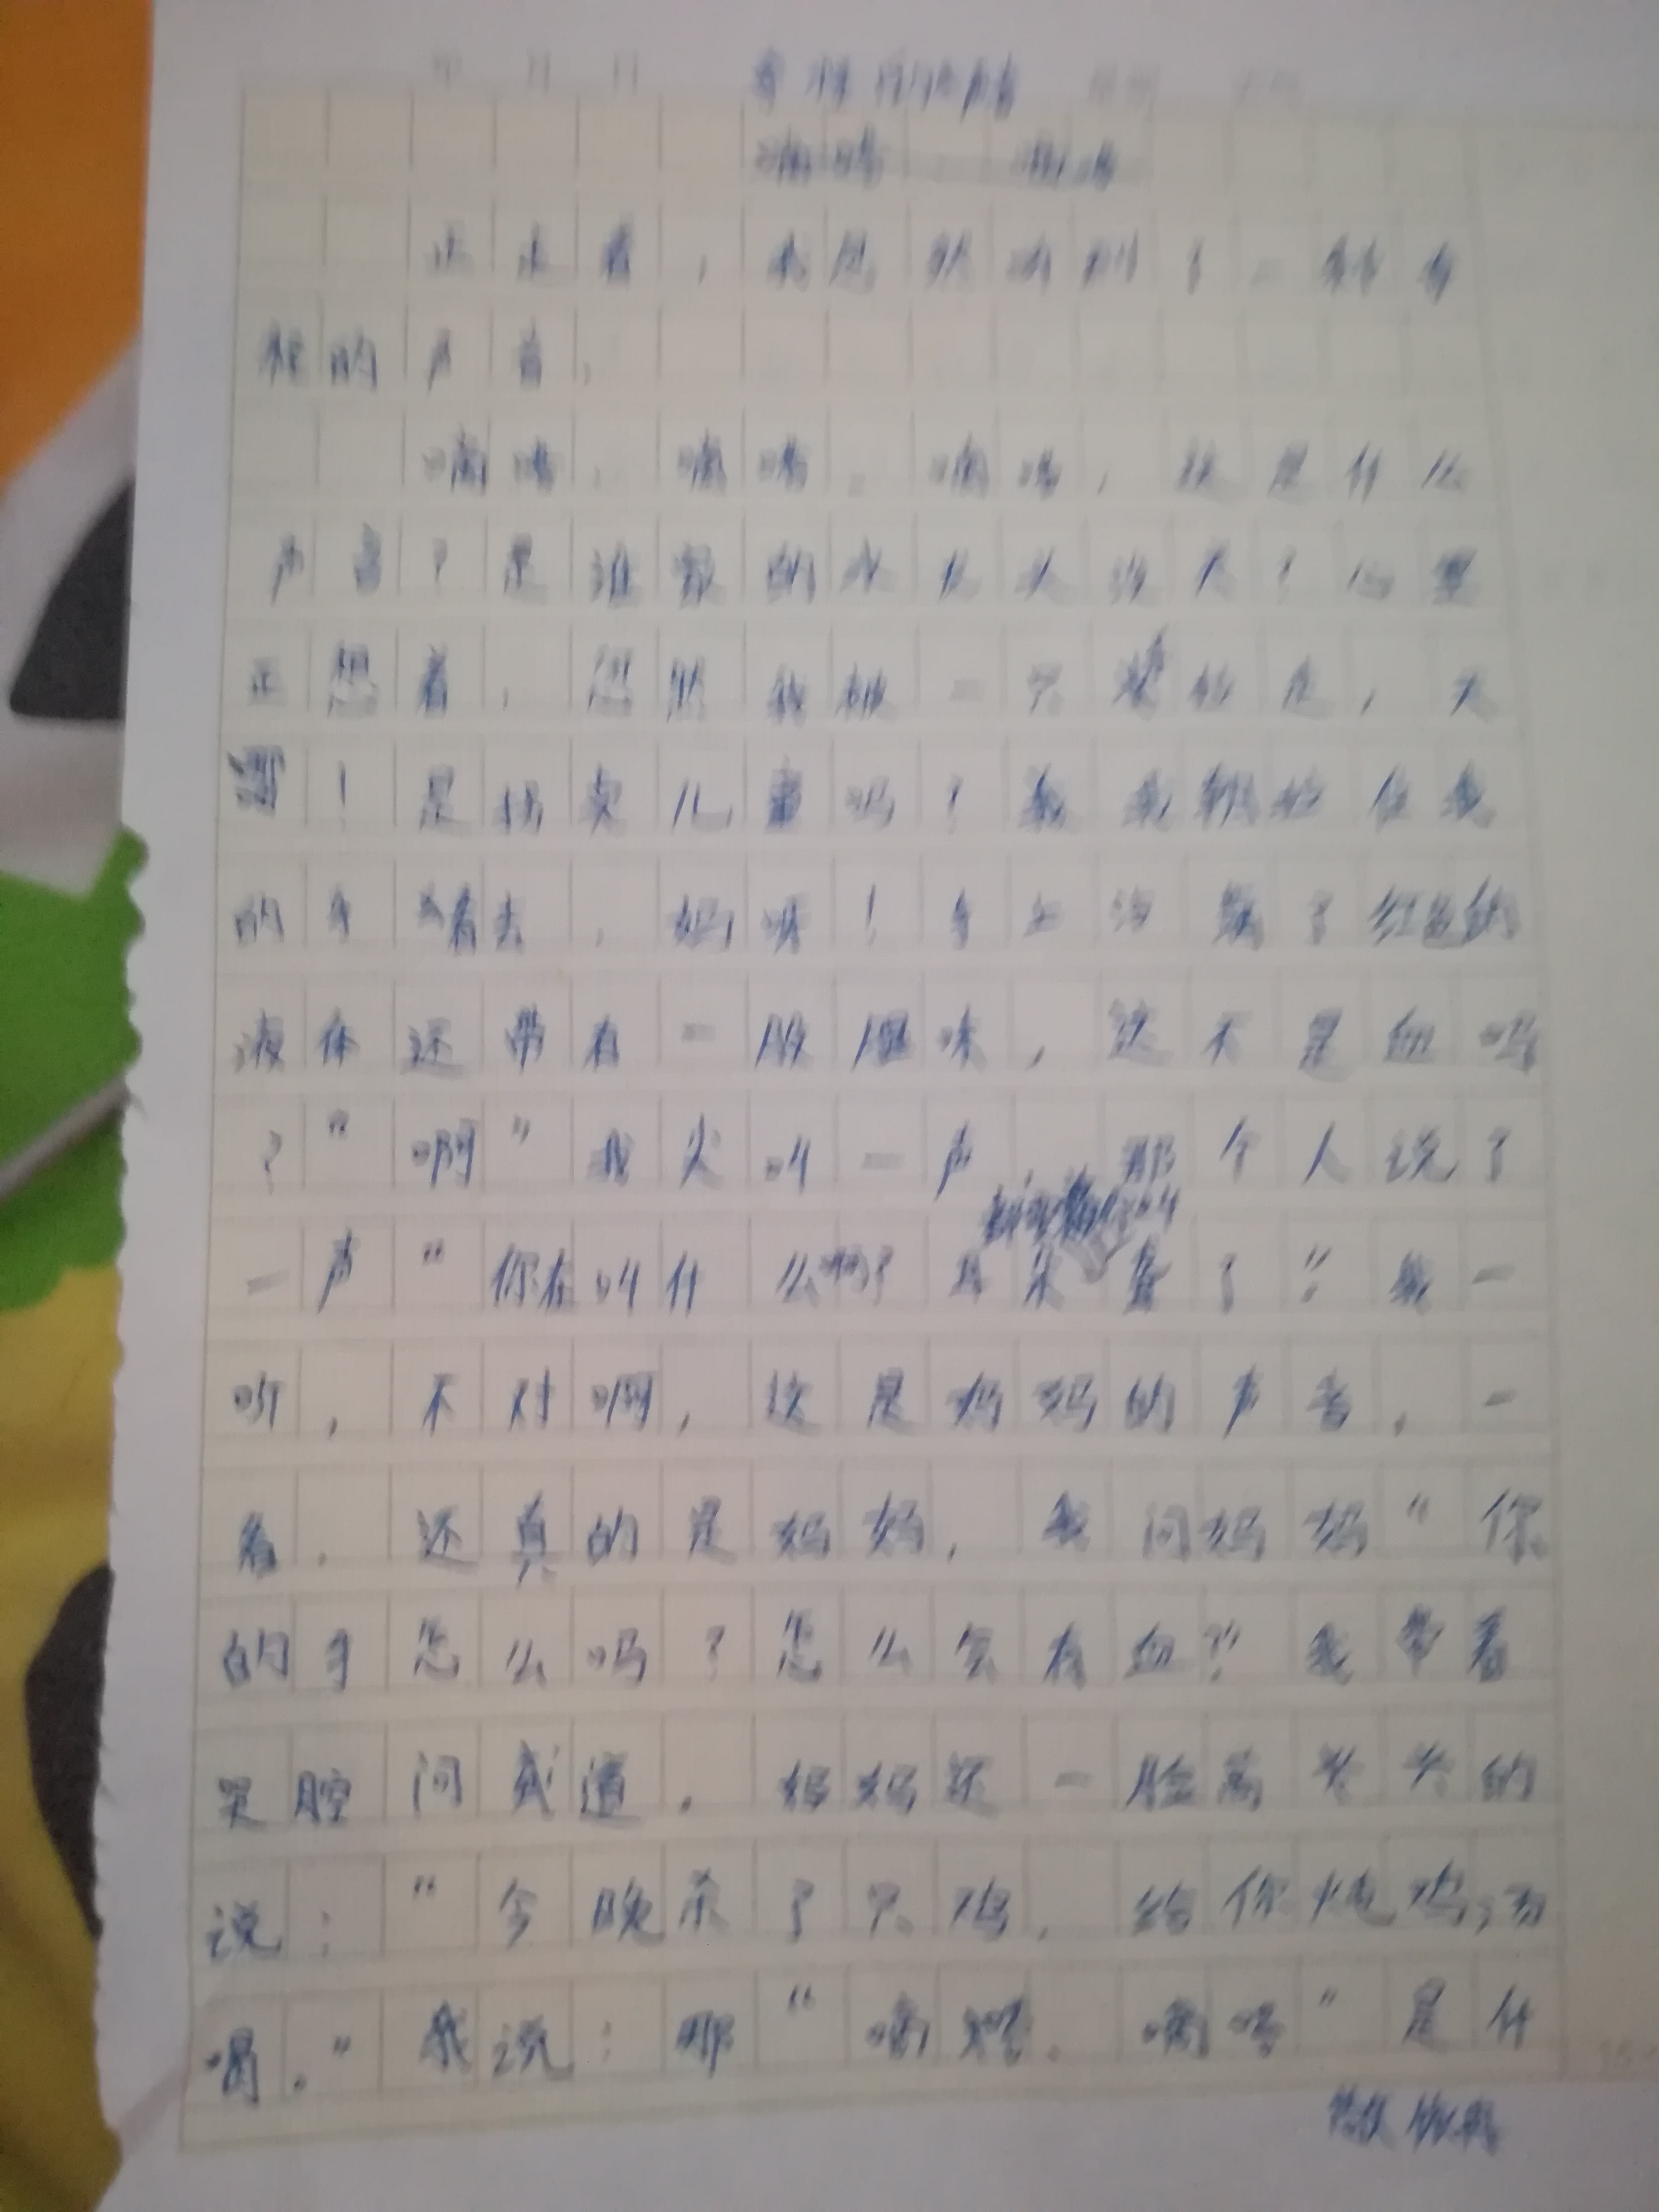 年 月 日 奇怪的声音
嘀嗒 嘀嗒
正走着，我忽然听到了一种奇
怪的声音，
嘀嗒，嘀嗒。嘀嗒，这是什么
声音？是谁家的水龙头没关？心里
正想着，忽然我被一只拉走，天
！是拐卖儿童吗？我我朝拉住我
的手看去，妈呀！手上沾满了红色的
液体还带有一股腥味，这不是血吗
？“啊”我尖叫一声 那个人说了
一声“你在叫什么啊？耳朵聋了”我一
听，不对啊，这是妈妈的声音，一
看，还真的是妈妈，我问妈妈“你
的手怎么吗？怎么会有血？”我带着
哭腔问道，妈妈还一脸笑的
说：“今晚杀了只鸡，给你炖鸡汤
喝。”我说：那“嘀嗒。嘀嗒”是什